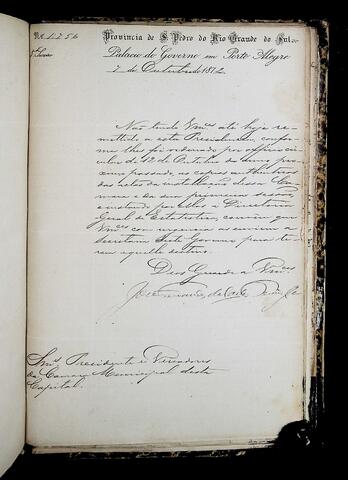 Provincia de S. Pedro do Rio Grande do Sul.
Palacio do Governo em Porto Alegre
2 de 1872
Não tendo Vmces até hoje re-
mettido a esta Presidencia, confor-
me lhes foi ordenado por officio cir-
cular de 12 de Outubro do anno pro-
ximo passado, as copias authenticas
das actas da installação dessa Ca-
mara e da sua primeira sessão
a Directoria
Geral de Estatistica, convém que
Vmces com urgencia as enviem a
Secretaria deste Governo para te-
rem aquelle destino.
Deos Guarde a Vmces
Snrs. Presidente e Vereadores
da Camara Municipal desta
Capital.